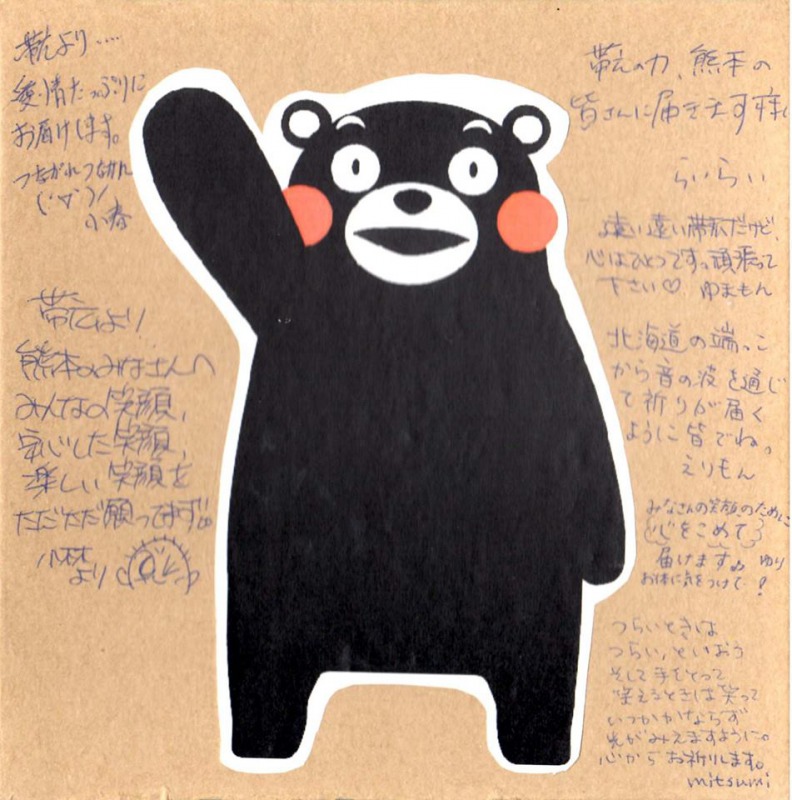 帯広より…
愛情たっぷりに
お届けします。
つながれつながれ
小春
帯広より
熊本のみなさんへ
みんなの笑顔、
安心した笑顔、
楽しい笑顔を
ただただ願ってます。
小林
より
帯広の力、熊本の
皆さんに届きます様に
らいらい
遠い遠い帯広だけど、
心はひとつですっ頑張って
下さい♡ ゆまもん
北海道の端っこ
から音の波を通じ
て祈りが届く
ように皆でね。
えりもん
みなさんの笑顔のために
心をこめて
届けます。 ゆり
お体に気をつけて!
つらいときは
つらい、といおう
そして手をとって
笑えるときは笑って
いつかかならず
光がみえますように。
心からお祈りします。
mitsumi